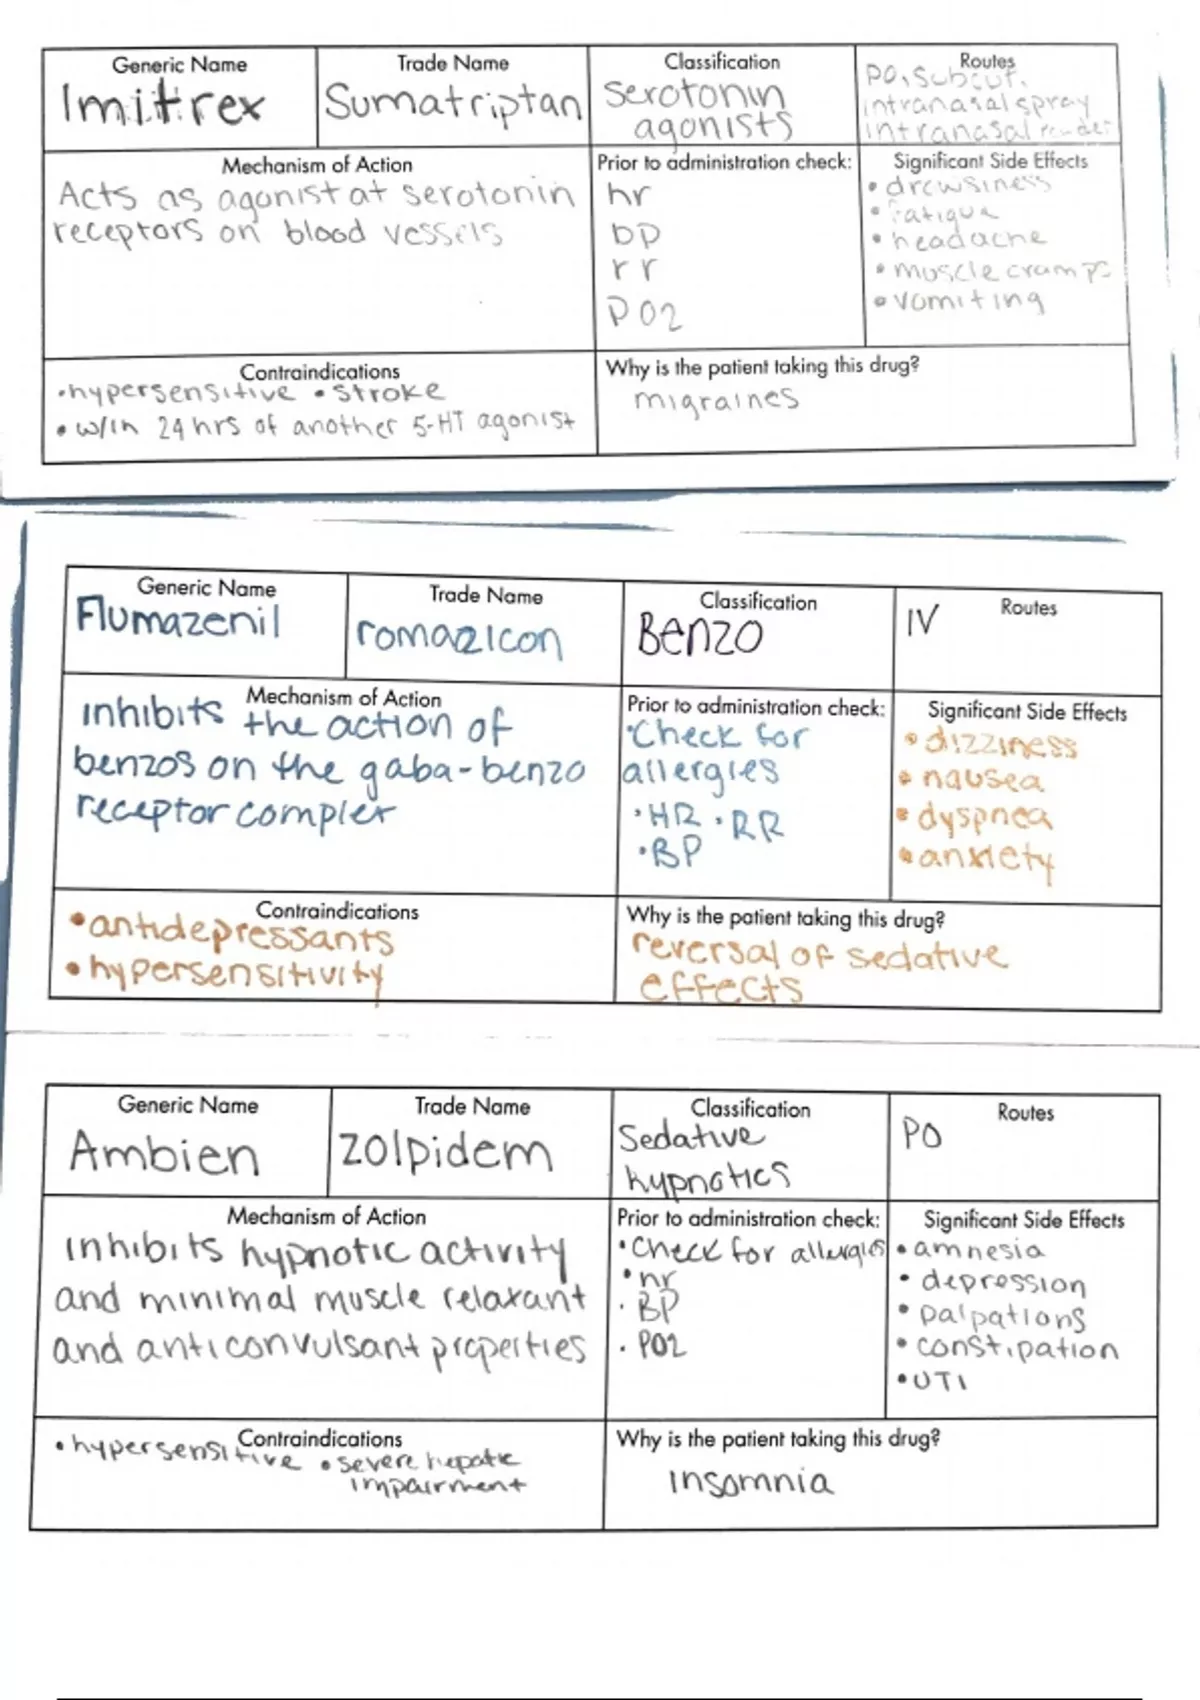 Generic Name
Imitrex
Trade Name
Sumatriptan
Classification
Serotonin
agonists
Routes
PO, Subcut,
intranasal spray
intranasal
Mechanism of Action
Acts as agonist at serotonin
receptors on blood vessels
Prior to administration check:
hr
bp
rr
PO2
Significant Side Effects
• drowsiness
• fatigue
• headache
• muscle cramps
• vomiting
Contraindications
• hypersensitive • stroke
• w/in 24 hrs of another 5-HT agonist
Why is the patient taking this drug?
migraines
Generic Name
Flumazenil
Trade Name
romazicon
Classification
Benzo
Routes
IV
Mechanism of Action
inhibits the action of
benzos on the gaba-benzo
receptor complex
Prior to administration check:
• Check for
allergies
• HR • RR
• BP
Significant Side Effects
• dizziness
• nausea
• dyspnea
• anxiety
Contraindications
• antidepressants
• hypersensitivity
Why is the patient taking this drug?
reversal of sedative
effects
Generic Name
Ambien
Trade Name
zolpidem
Classification
Sedative
hypnotics
Routes
PO
Mechanism of Action
Inhibits hypnotic activity
and minimal muscle relaxant
and anticonvulsant properties
Prior to administration check:
• Check for allergies
• hr
• BP
• PO2
Significant Side Effects
• amnesia
• depression
• palpations
• constipation
• UTI
Contraindications
• hypersensitive • severe hepatic
impairment
Why is the patient taking this drug?
insomnia